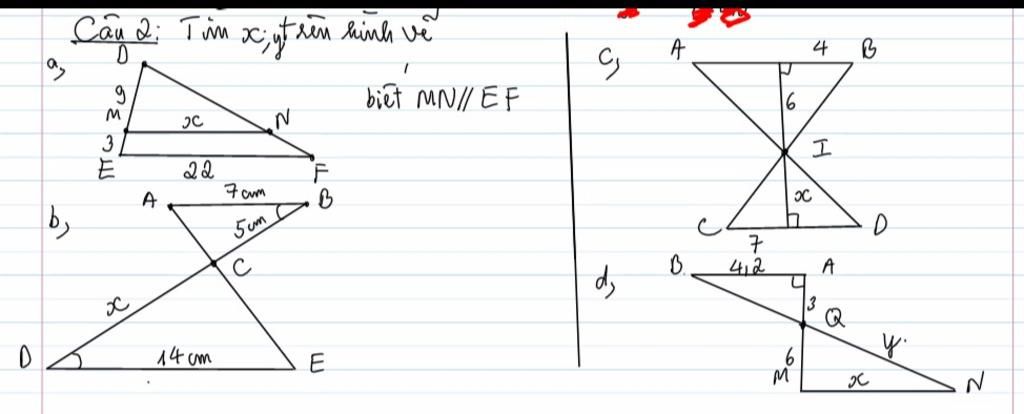 Câu 2: Tìm x; y trên hình vẽ
a,
D
9
M
x
N
3
E
22
F
biết MN // EF
b,
A
7cm
B
5cm
C
x
D
14 cm
E
c,
A
4
B
6
I
x
C
7
D
d,
B
4,2
A
3
Q
y
6
M
x
N